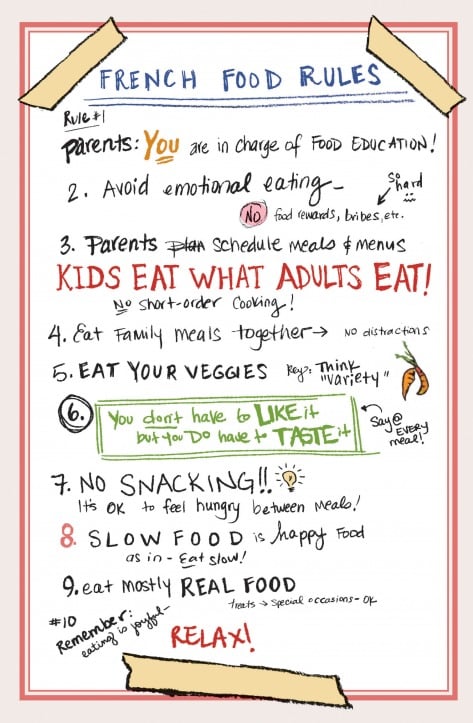 FRENCH FOOD RULES
Rule #1
Parents: YOU are in charge of FOOD EDUCATION!
2. Avoid emotional eating-
So hard
NO food rewards, bribes, etc.
3. Parents plan schedule meals & menus
KIDS EAT WHAT ADULTS EAT!
No short-order cooking!
4. Eat Family meals together → NO distractions
5. EAT YOUR VEGGIES Key: Think
"Variety"
6. You don't have to LIKE it
but you DO have to TASTE it
Say @
EVERY
meal!
7. NO SNACKING!!
It's OK to feel hungry between meals!
8. SLOW FOOD is happy Food
as in - Eat slow!
9. eat mostly REAL FOOD
treats → special occasions - OK
#10
Remember:
eating is joyful-
RELAX!